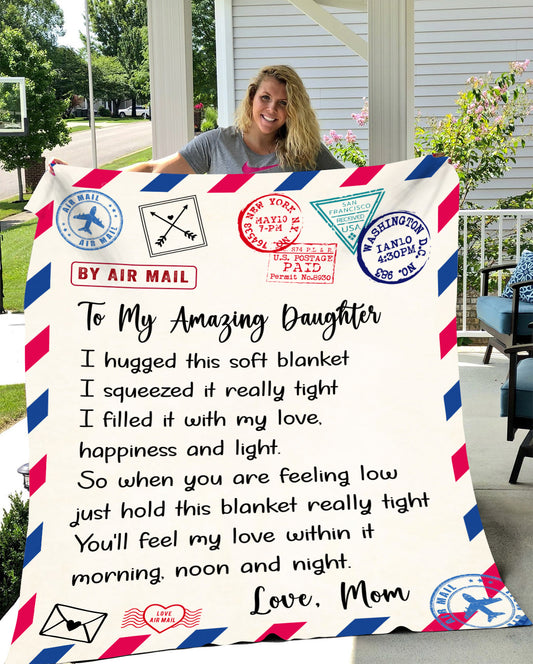 AIR MAIL
AIR MAIL
NEW YORK, N.Y.
MAY10
7-PM
SAN FRANCISCO
RECEIVED
USA
WASHINGTON, D.C.
IAN10
4:30PM
NO. 963
U.S. POSTAGE
PAID
Permit No.8930
BY AIR MAIL
To My Amazing Daughter
I hugged this soft blanket
I squeezed it really tight
I filled it with my love,
happiness and light.
So when you are feeling low
just hold this blanket really tight
You'll feel my love within it
morning, noon and night.
Love, Mom
LOVE
AIR MAIL
AIR MAIL